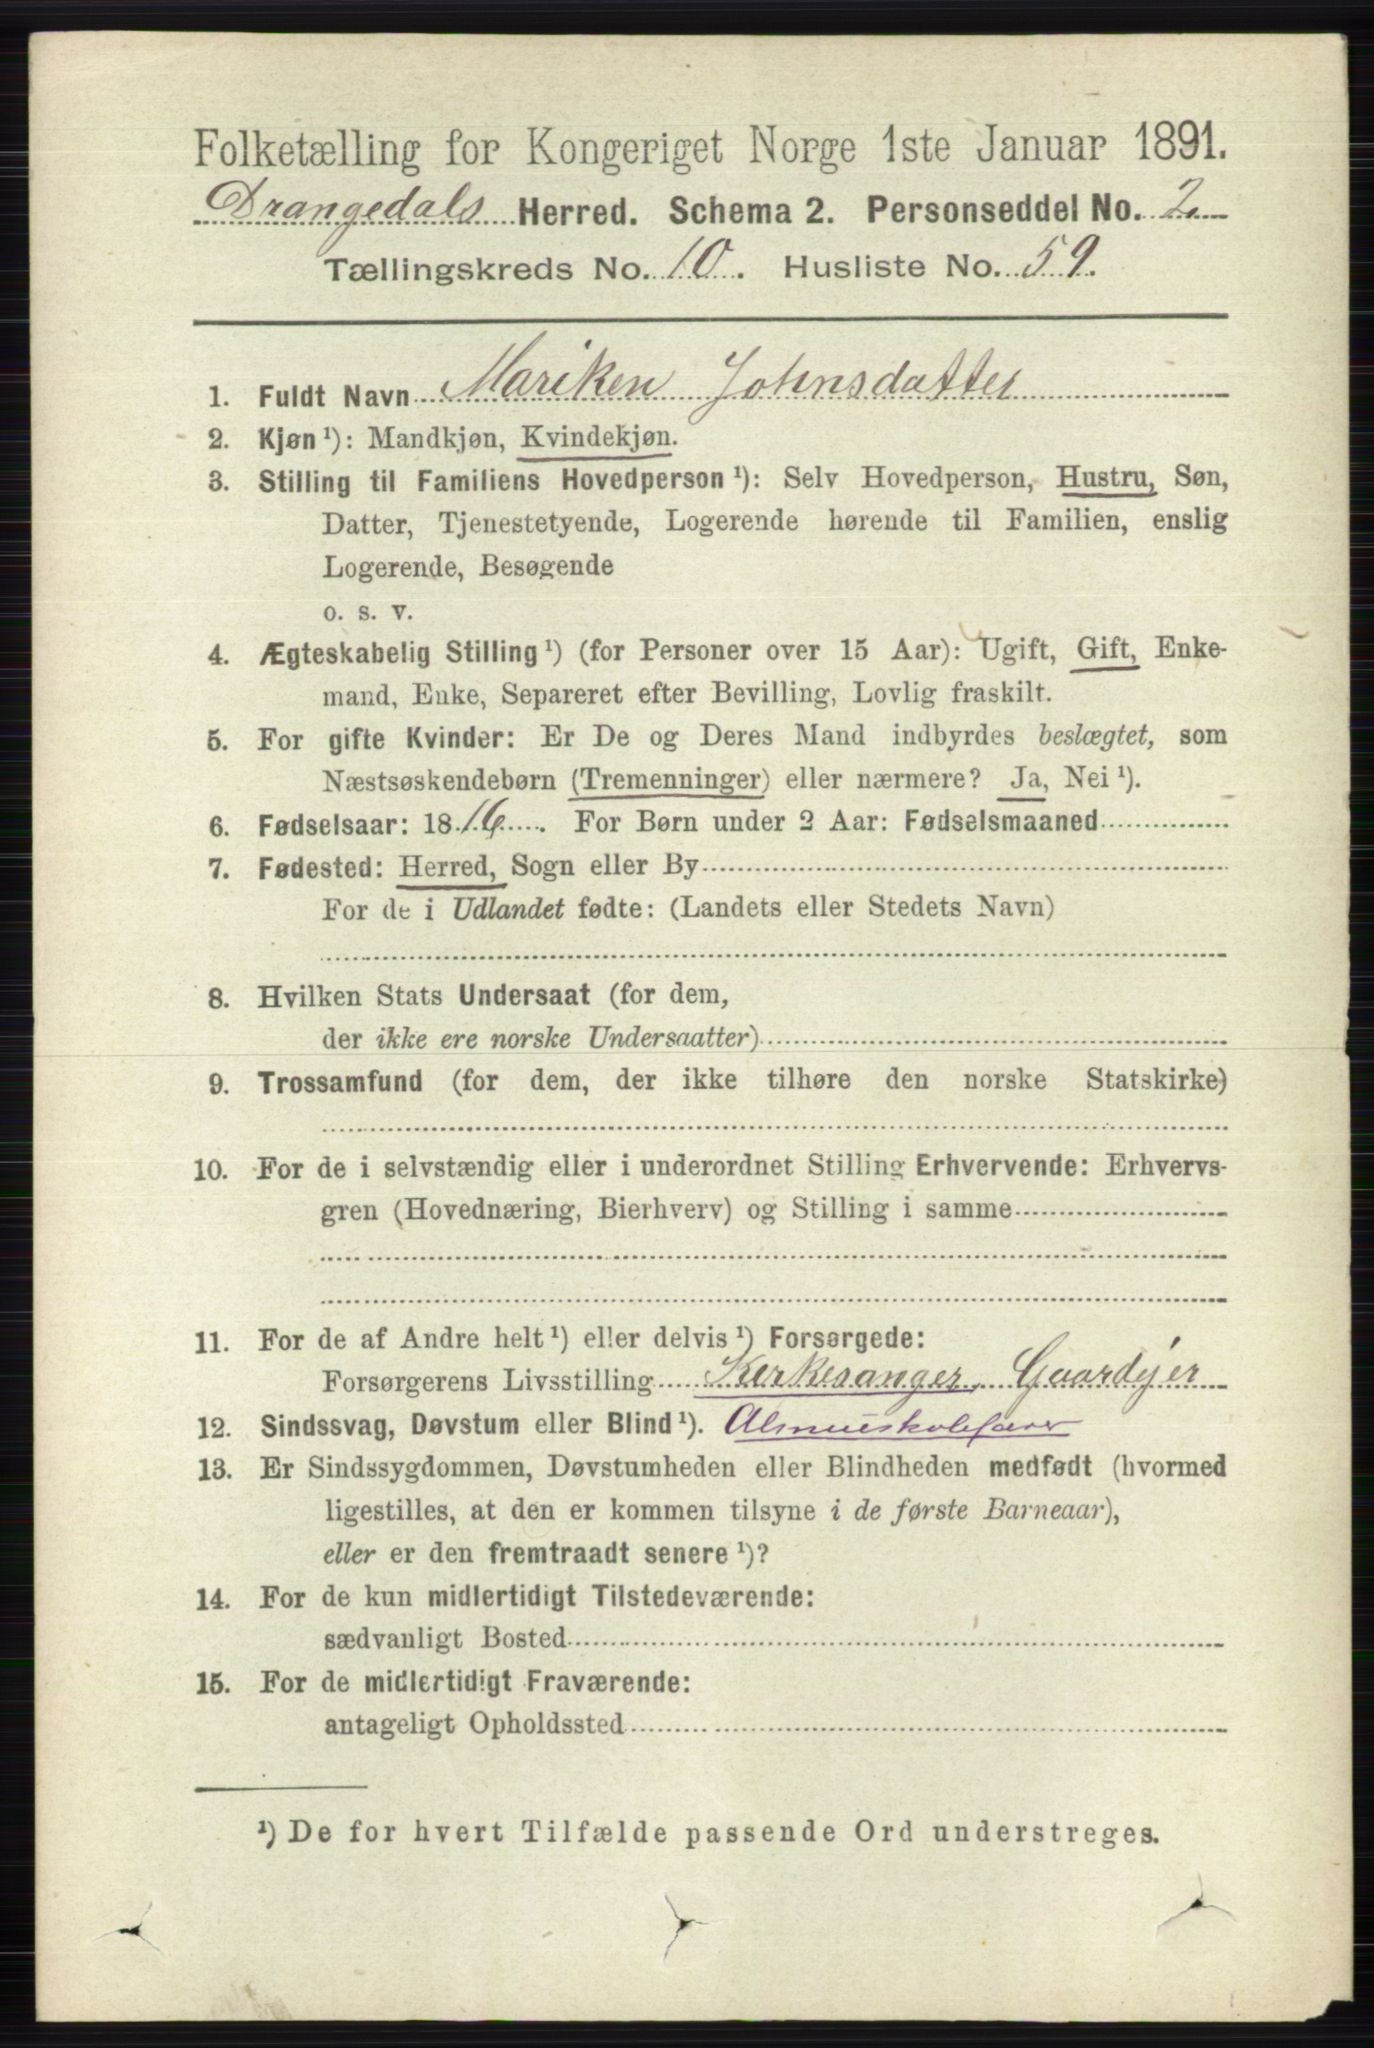 Folketælling for Kongeriget Norge 1ste Januar 1891.
Drangedals Herred. Schema 2. Personseddel No. 2.
Tællingskreds No. 10. Husliste No. 59.
1. Fuldt Navn Mariken Johnsdatter
2. Kjøn ¹): Mandkjøn, Kvindekjøn.
3. Stilling til Familiens Hovedperson ¹): Selv Hovedperson, Hustru, Søn,
Datter, Tjenestetyende, Logerende hørende til Familien, enslig
Logerende, Besøgende
o. s. v.
4. Ægteskabelig Stilling ¹) (for Personer over 15 Aar): Ugift, Gift, Enke-
mand, Enke, Separeret efter Bevilling, Lovlig fraskilt.
5. For gifte Kvinder: Er De og Deres Mand indbyrdes beslægtet, som
Næstsøskendebørn (Tremenninger) eller nærmere? Ja, Nei ¹).
6. Fødselsaar: 1816. For Børn under 2 Aar: Fødselsmaaned
7. Fødested: Herred, Sogn eller By
For de i Udlandet fødte: (Landets eller Stedets Navn)
8. Hvilken Stats Undersaat (for dem,
der ikke ere norske Undersaatter)
9. Trossamfund (for dem, der ikke tilhøre den norske Statskirke)
10. For de i selvstændig eller i underordnet Stilling Erhvervende: Erhvervs-
gren (Hovednæring, Bierhverv) og Stilling i samme
11. For de af Andre helt ¹) eller delvis ¹) Forsørgede:
Forsørgerens Livsstilling Kirkesanger, Gaardejer
12. Sindssvag, Døvstum eller Blind ¹). Almueskolelærer
13. Er Sindssygdommen, Døvstumheden eller Blindheden medfødt (hvormed
ligestilles, at den er kommen tilsyne i de første Barneaar),
eller er den fremtraadt senere ¹)?
14. For de kun midlertidigt Tilstedeværende:
sædvanligt Bosted
15. For de midlertidigt Fraværende:
antageligt Opholdssted
¹) De for hvert Tilfælde passende Ord understreges.